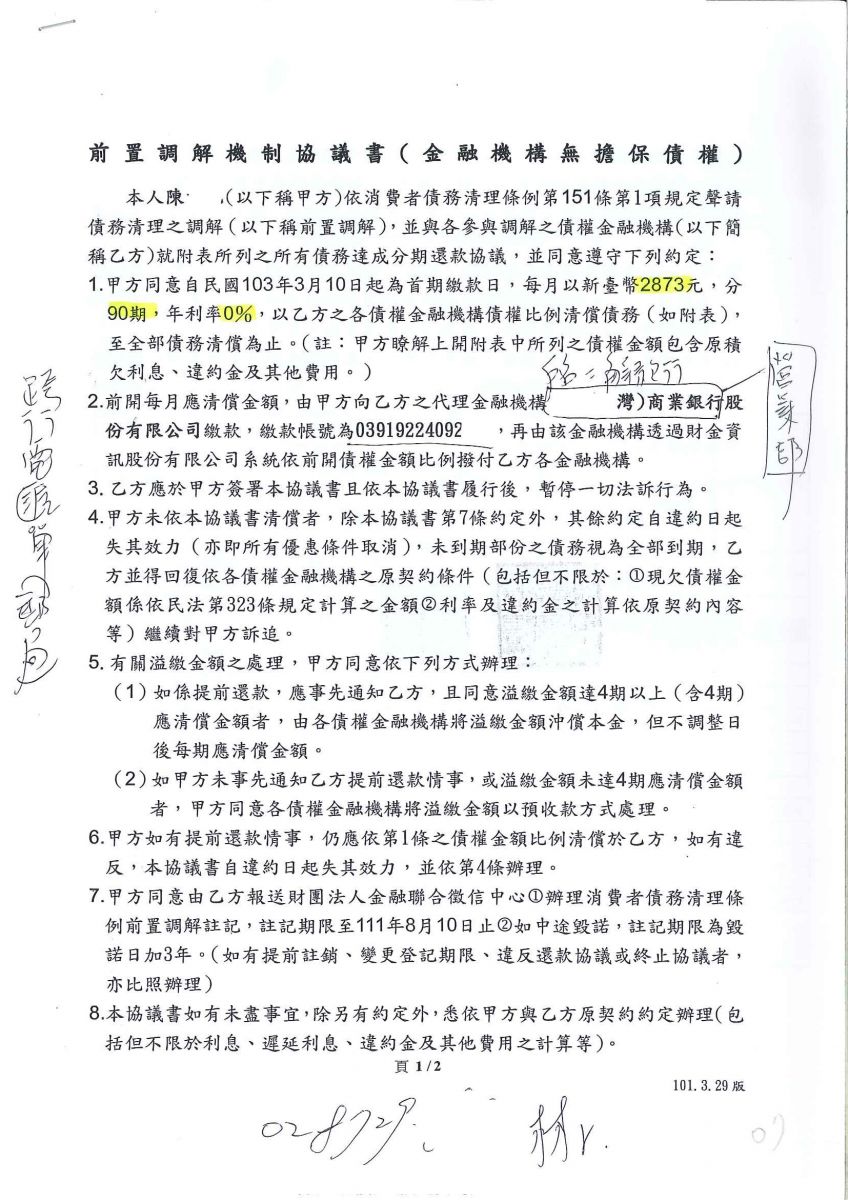 前置調解機制協議書(金融機構無擔保債權)
本人陳 (以下稱甲方)依消費者債務清理條例第151條第1項規定聲請
債務清理之調解(以下稱前置調解),並與各參與調解之債權金融機構(以下簡
稱乙方)就附表所列之所有債務達成分期還款協議,並同意遵守下列約定:
1.甲方同意自民國103年3月10日起為首期繳款日,每月以新臺幣2873元,分
90期,年利率0%,以乙方之各債權金融機構債權比例清償債務(如附表),
至全部債務清償為止。(註:甲方瞭解上開附表中所列之債權金額包含原積
欠利息、違約金及其他費用。)
2.前開每月應清償金額,由甲方向乙方之代理金融機構 灣)商業銀行股
份有限公司繳款,繳款帳號為03919224092 ,再由該金融機構透過財金資
訊股份有限公司系統依前開債權金額比例撥付乙方各金融機構。
3.乙方應於甲方簽署本協議書且依本協議書履行後,暫停一切法訴行為。
4.甲方未依本協議書清償者,除本協議書第7條約定外,其餘約定自違約日起
失其效力(亦即所有優惠條件取消),未到期部份之債務視為全部到期,乙
方並得回復依各債權金融機構之原契約條件(包括但不限於:①現欠債權金
額係依民法第323條規定計算之金額②利率及違約金之計算依原契約內容
等)繼續對甲方訴追。
5.有關溢繳金額之處理,甲方同意依下列方式辦理:
(1)如係提前還款,應事先通知乙方,且同意溢繳金額達4期以上(含4期)
應清償金額者,由各債權金融機構將溢繳金額沖償本金,但不調整日
後每期應清償金額。
(2)如甲方未事先通知乙方提前還款情事,或溢繳金額未達4期應清償金額
者,甲方同意各債權金融機構將溢繳金額以預收款方式處理。
6.甲方如有提前還款情事,仍應依第1條之債權金額比例清償於乙方,如有違
反,本協議書自違約日起失其效力,並依第4條辦理。
7.甲方同意由乙方報送財團法人金融聯合徵信中心①辦理消費者債務清理條
例前置調解註記,註記期限至111年8月10日止②如中途毀諾,註記期限為毀
諾日加3年。(如有提前註銷、變更登記期限、違反還款協議或終止協議者,
亦比照辦理)
8.本協議書如有未盡事宜,除另有約定外,悉依甲方與乙方原契約約定辦理(包
括但不限於利息、遲延利息、違約金及其他費用之計算等)。
頁 1/2
101.3.29版
營業部